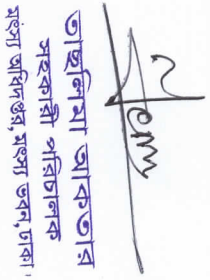 তাছলিমা আকতার
সহকারী পরিচালক
মৎস্য অধিদপ্তর, মৎস্য ভবন, ঢাকা।